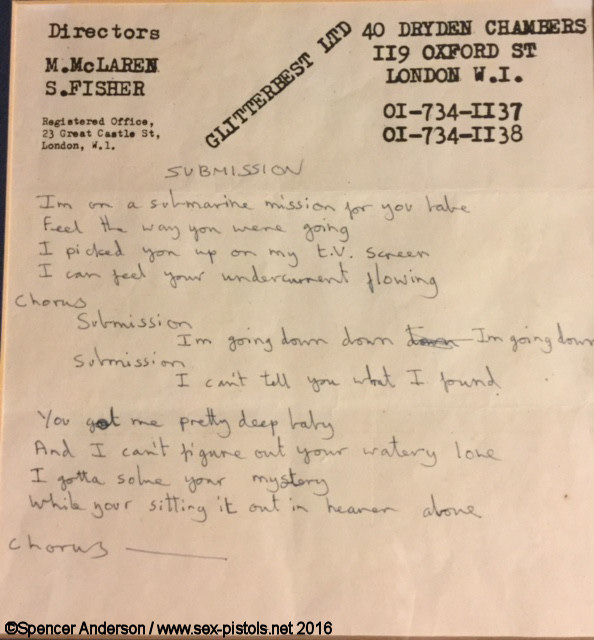 Directors
M.McLAREN
S.FISHER
Registered Office,
23 Great Castle St,
London, W.1.
GLITTERBEST LTD
40 DRYDEN CHAMBERS
119 OXFORD ST
LONDON W.I.
01-734-1137
01-734-1138
SUBMISSION
Im on a submarine mission for you babe
Feel the way you were going
I picked you up on my t.v. screen
I can feel your undercurrent flowing
Chorus
Submission
Im going down down down Im going down
Submission
I can't tell you what I found
You got me pretty deep baby
And I can't figure out your watery love
I gotta solve your mystery
While your sitting it out in heaven above
Chorus
©Spencer Anderson / www.sex-pistols.net 2016